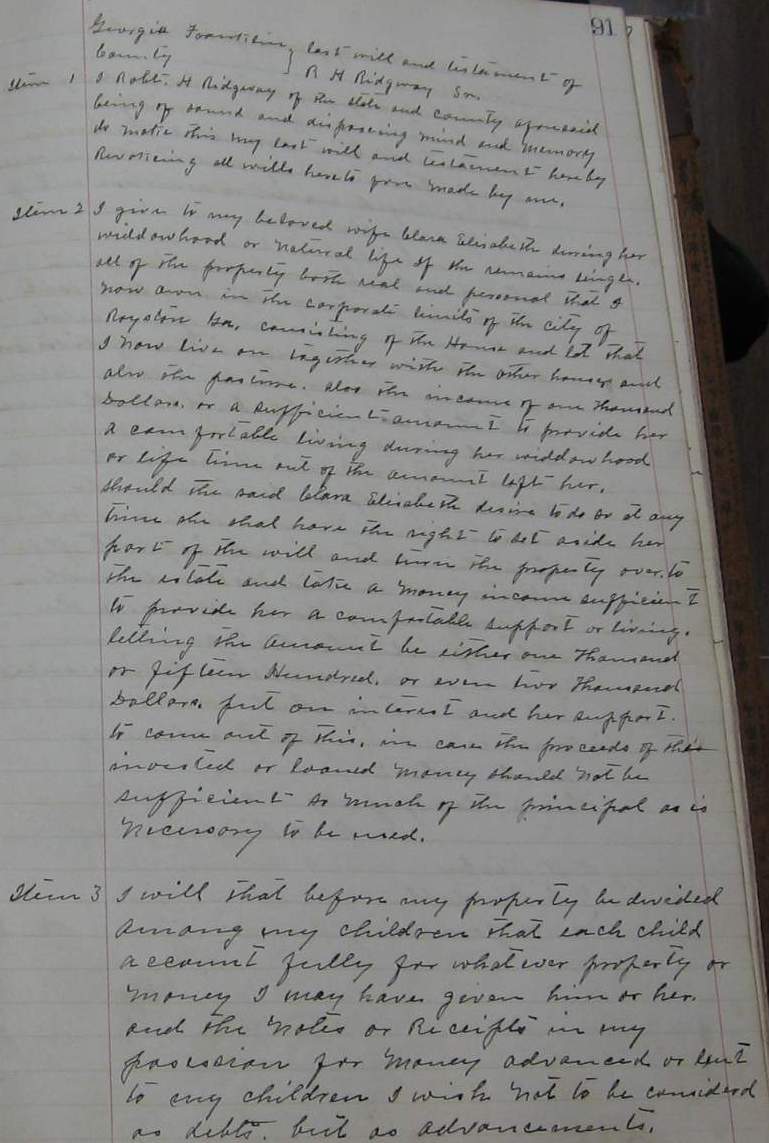 91
Georgia Franklin } last will and testament of
County } R H Ridgway Sr.
Item 1 I Robt. H Ridgway of the state and county aforesaid
being of sound and disposing mind and memory
do make this my last will and testament hereby
Revokeing all wills hereto fore made by me.
Item 2 I give to my beloved wife Clara Elisabeth during her
widdowhood or natural life if she remains single.
all of the property both real and personal that I
now own in the corporate limits of the city of
Royston Ga, consisting of the House and lot that
I now live on together with the other houses and
also the pasture. also the income of one thousand
Dollars. or a sufficient amount to provide her
a comfortable living during her widdowhood
or life time out of the amount left her.
should the said Clara Elisabeth desire to do so at any
time she shal have the right to set aside her
part of the will and turn the property over to
the estate and take a money income sufficient
to provide her a comfortable support or living.
letting the amount be either one thousand
or fifteen Hundred. or even two thousand
Dollars. put on interest and her support.
to come out of this, in case the proceeds of this
invested or loaned money should not be
sufficient so much of the principal as is
necessary to be used.
Item 3 I will that before my property be devided
among my children that each child
account fully for whatever property or
money I may have given him or her.
and the notes or Receipts in my
posession for money advanced or lent
to my children I wish not to be considerd
as debts. but as advancements.